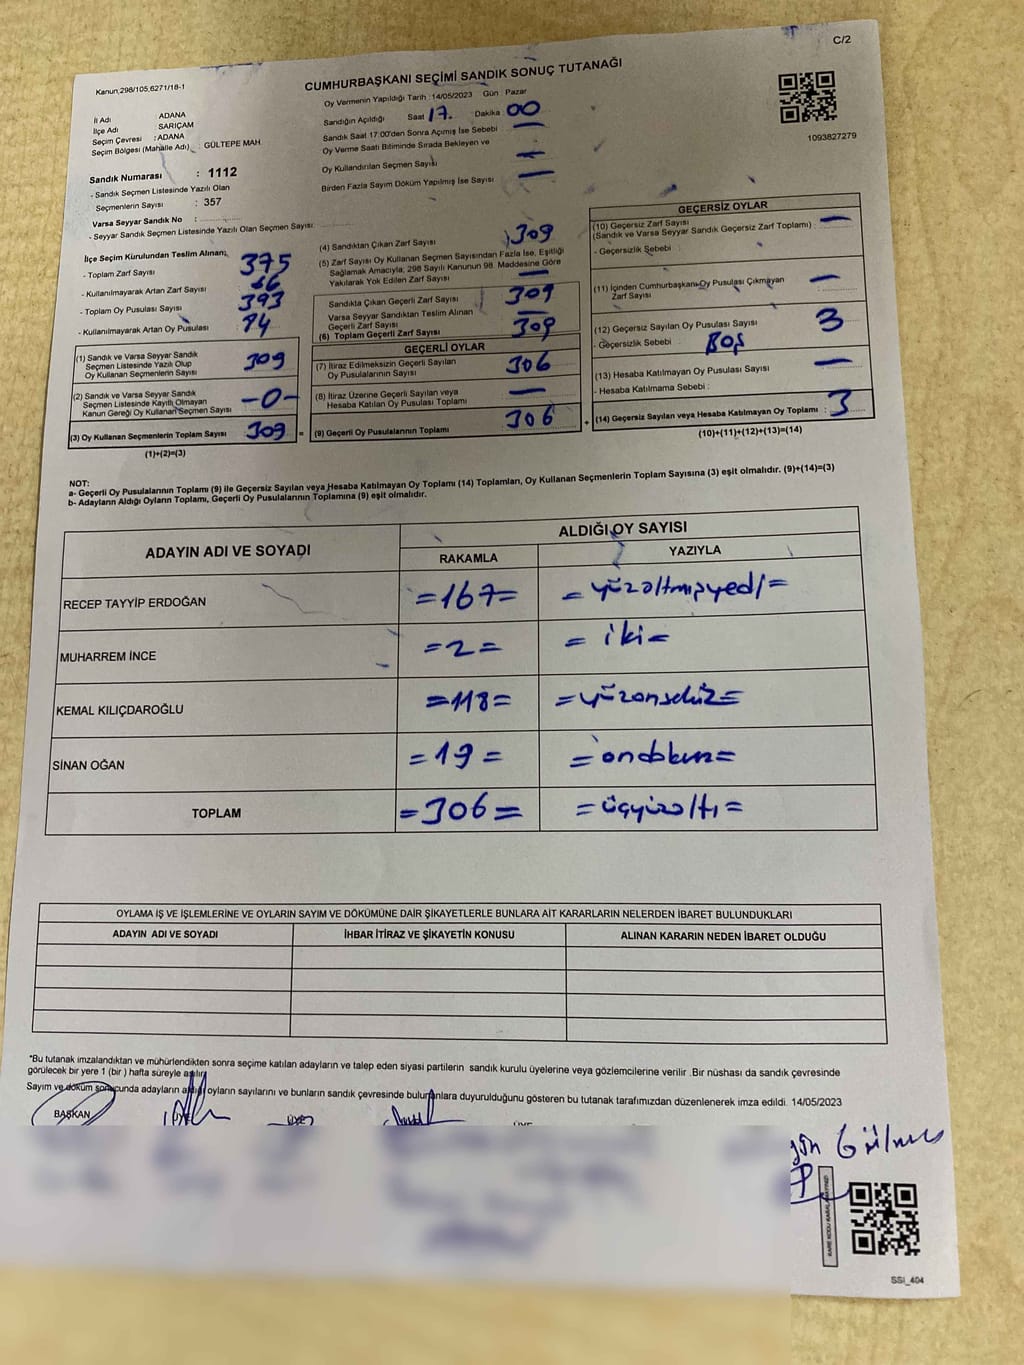 C/2
Kanun,298/105,6271/18-1
CUMHURBAŞKANI SEÇİMİ SANDIK SONUÇ TUTANAĞI
Oy Vermenin Yapıldığı Tarih :14/05/2023 Gün : Pazar
Sandığın Açıldığı Saat 17. Dakika 00
Sandık Saat 17:00'den Sonra Açımış İse Sebebi —
Oy Verme Saati Bitiminde Sırada Bekleyen ve
Oy Kullandırılan Seçmen Sayısı —
Birden Fazla Sayım Döküm Yapılmış İse Sayısı —
1093827279
İl Adı ADANA
İlçe Adı SARIÇAM
Seçim Çevresi : ADANA
Seçim Bölgesi (Mahalle Adı) : GÜLTEPE MAH.
Sandık Numarası : 1112
- Sandık Seçmen Listesinde Yazılı Olan
Seçmenlerin Sayısı : 357
Varsa Seyyar Sandık No :
- Seyyar Sandık Seçmen Listesinde Yazılı Olan Seçmen Sayısı:
İlçe Seçim Kurulundan Teslim Alınan;
- Toplam Zarf Sayısı 375
- Kullanılmayarak Artan Zarf Sayısı 66
- Toplam Oy Pusulası Sayısı 393
- Kullanılmayarak Artan Oy Pusulası 84
(1) Sandık ve Varsa Seyyar Sandık
Seçmen Listesinde Yazılı Olup
Oy Kullanan Seçmenlerin Sayısı 309
(2) Sandık ve Varsa Seyyar Sandık
Seçmen Listesinde Kayıtlı Olmayan
Kanun Gereği Oy Kullanan Seçmen Sayısı -0-
(3) Oy Kullanan Seçmenlerin Toplam Sayısı 309 =
(1)+(2)=(3)
(4) Sandıktan Çıkan Zarf Sayısı 309
(5) Zarf Sayısı Oy Kullanan Seçmen Sayısından Fazla İse, Eşitliği
Sağlamak Amacıyla, 298 Sayılı Kanunun 98. Maddesine Göre
Yakılarak Yok Edilen Zarf Sayısı —
Sandıkta Çıkan Geçerli Zarf Sayısı 309
Varsa Seyyar Sandıktan Teslim Alınan
Geçerli Zarf Sayısı —
(6) Toplam Geçerli Zarf Sayısı 309
GEÇERLİ OYLAR
(7) İtiraz Edilmeksizin Geçerli Sayılan
Oy Pusulalarının Sayısı 306
(8) İtiraz Üzerine Geçerli Sayılan veya
Hesaba Katılan Oy Pusulası Toplamı —
(9) Geçerli Oy Pusulalarının Toplamı 306 +
GEÇERSİZ OYLAR
(10) Geçersiz Zarf Sayısı
(Sandık ve Varsa Seyyar Sandık Geçersiz Zarf Toplamı) : —
- Geçersizlik Sebebi :
(11) İçinden Cumhurbaşkanı Oy Pusulası Çıkmayan
Zarf Sayısı —
(12) Geçersiz Sayılan Oy Pusulası Sayısı 3
- Geçersizlik Sebebi : BOŞ
(13) Hesaba Katılmayan Oy Pusulası Sayısı —
- Hesaba Katılmama Sebebi :
(14) Geçersiz Sayılan veya Hesaba Katılmayan Oy Toplamı : 3
(10)+(11)+(12)+(13)=(14)
NOT:
a- Geçerli Oy Pusulalarının Toplamı (9) ile Geçersiz Sayılan veya Hesaba Katılmayan Oy Toplamı (14) Toplamları, Oy Kullanan Seçmenlerin Toplam Sayısına (3) eşit olmalıdır. (9)+(14)=(3)
b- Adayların Aldığı Oyların Toplamı, Geçerli Oy Pusulalarının Toplamına (9) eşit olmalıdır.
ADAYIN ADI VE SOYADI
ALDIĞI OY SAYISI
RAKAMLA YAZIYLA
RECEP TAYYİP ERDOĞAN =167= =yüzaltmışyedi=
MUHARREM İNCE =2= =iki=
KEMAL KILIÇDAROĞLU =118= =yüzonsekiz=
SİNAN OĞAN =19= =ondokuz=
TOPLAM =306= =üçyüzaltı=
OYLAMA İŞ VE İŞLEMLERİNE VE OYLARIN SAYIM VE DÖKÜMÜNE DAİR ŞİKAYETLERLE BUNLARA AİT KARARLARIN NELERDEN İBARET BULUNDUKLARI
ADAYIN ADI VE SOYADI İHBAR İTİRAZ VE ŞİKAYETİN KONUSU ALINAN KARARIN NEDEN İBARET OLDUĞU
*Bu tutanak imzalandıktan ve mühürlendikten sonra seçime katılan adayların ve talep eden siyasi partilerin sandık kurulu üyelerine veya gözlemcilerine verilir .Bir nüshası da sandık çevresinde
görülecek bir yere 1 (bir ) hafta süreyle asılır.
Sayım ve döküm sonucunda adayların aldığı oyların sayılarını ve bunların sandık çevresinde bulunanlara duyurulduğunu gösteren bu tutanak tarafımızdan düzenlenerek imza edildi. 14/05/2023
BAŞKAN ÜYE
SSI_404